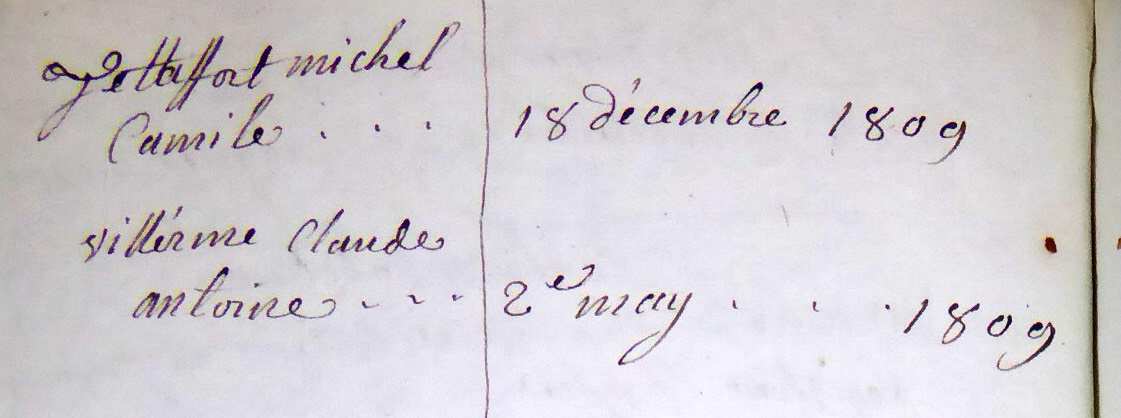 michel
Camile . . . 18 décembre 1809
villérme Claude
antoine . . . 2e may . . . 1809